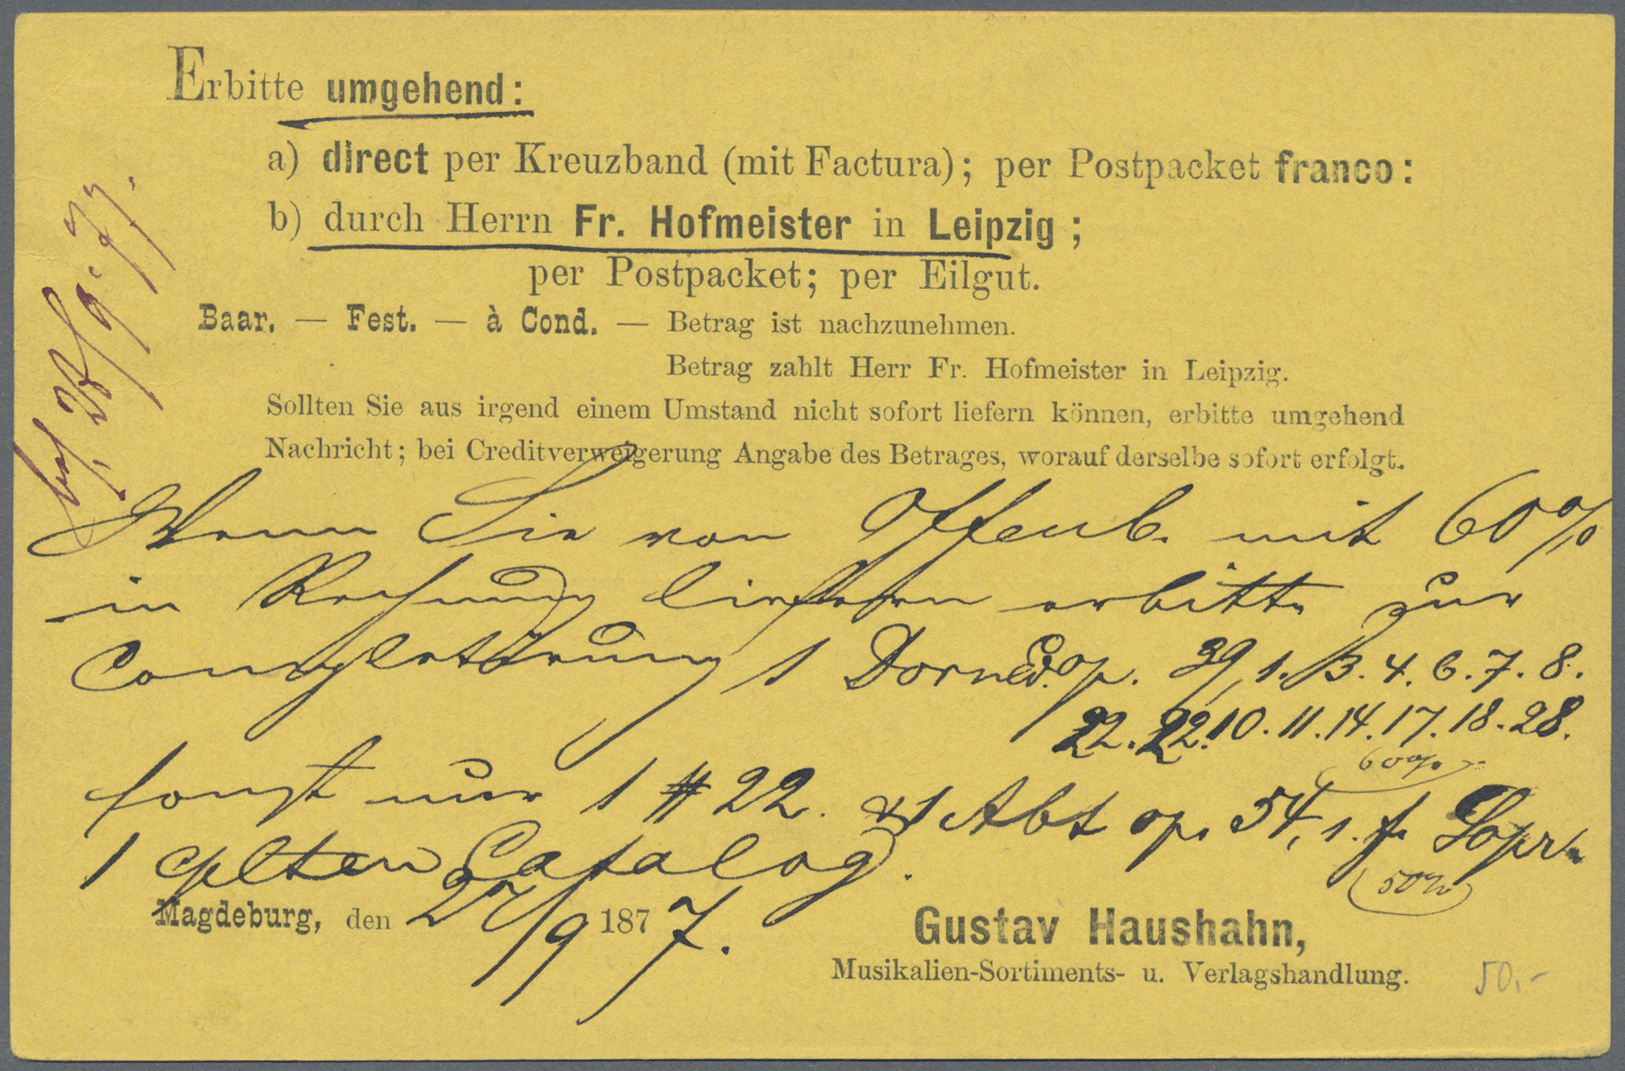 Erbitte umgehend:
a) direct per Kreuzband (mit Factura); per Postpacket franco:
b) durch Herrn Fr. Hofmeister in Leipzig;
per Postpacket; per Eilgut.
Baar. — Fest. — à Cond. — Betrag ist nachzunehmen.
Betrag zahlt Herr Fr. Hofmeister in Leipzig.
Sollten Sie aus irgend einem Umstand nicht sofort liefern können, erbitte umgehend
Nachricht; bei Creditverweigerung Angabe des Betrages, worauf derselbe sofort erfolgt.
28/9. 77.
Wenn Sie von Offenb. mit 60%
in Rechnung liefern erbitte zur
Completirung 1 Dorn Ed. op. 39, 1. 3. 4. 6. 7. 8.
22. 22. 10. 11. 14. 17. 18. 28.
60%
sonst nur 1 # 22. & 1 Abt op. 54, 1. f. Sopr.
50%
1 cplten Catalog.
Magdeburg, den 27/9 1877.
Gustav Haushahn,
Musikalien-Sortiments- u. Verlagshandlung.
50.-